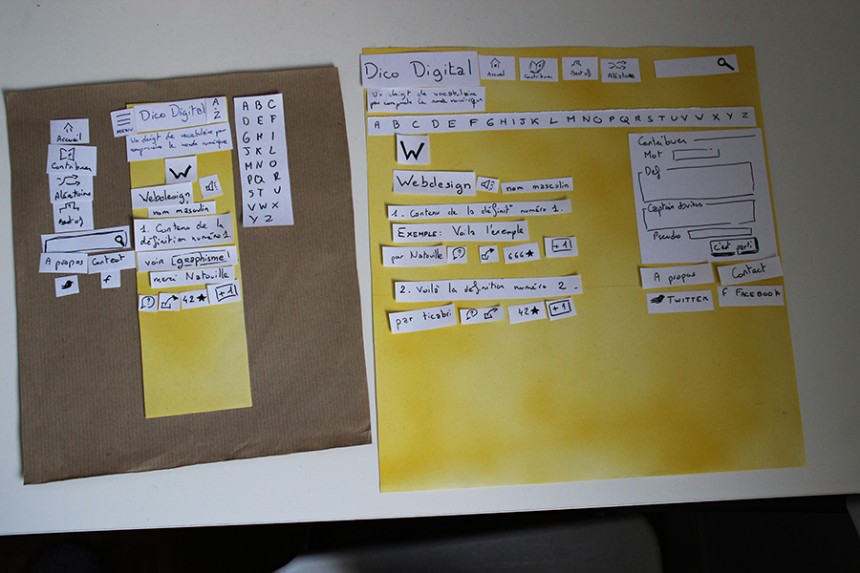 Accueil
Contribuer
Aléatoire
Best of
A propos
Contact
f
MENU
Dico Digital
A
Z
Un doigt de vocabulaire pour
comprendre le monde numérique
W
Webdesign
nom masculin
1. Contenu de la
définition numéro 1.
voir [graphisme]
merci Natouille
42★
+1
A B C
D E F
G H I
J K L
M N O
P Q R
S T U
V W X
Y Z
Dico Digital
Accueil
Contribuer
Best of
Aléatoire
Un doigt de vocabulaire
pour comprendre le monde numérique
A B C D E F G H I J K L M N O P Q R S T U V W X Y Z
W
Webdesign
nom masculin
1. Contenu de la définit° numéro 1.
EXEMPLE: Voilà l'exemple
par Natouille
666★
+1
2. Voilà la définition numéro 2.
par ticabri
42★
+1
Contribuer
Mot
Def
Pseudo
c'est parti
A propos
Contact
TWITTER
f FACEBOOK